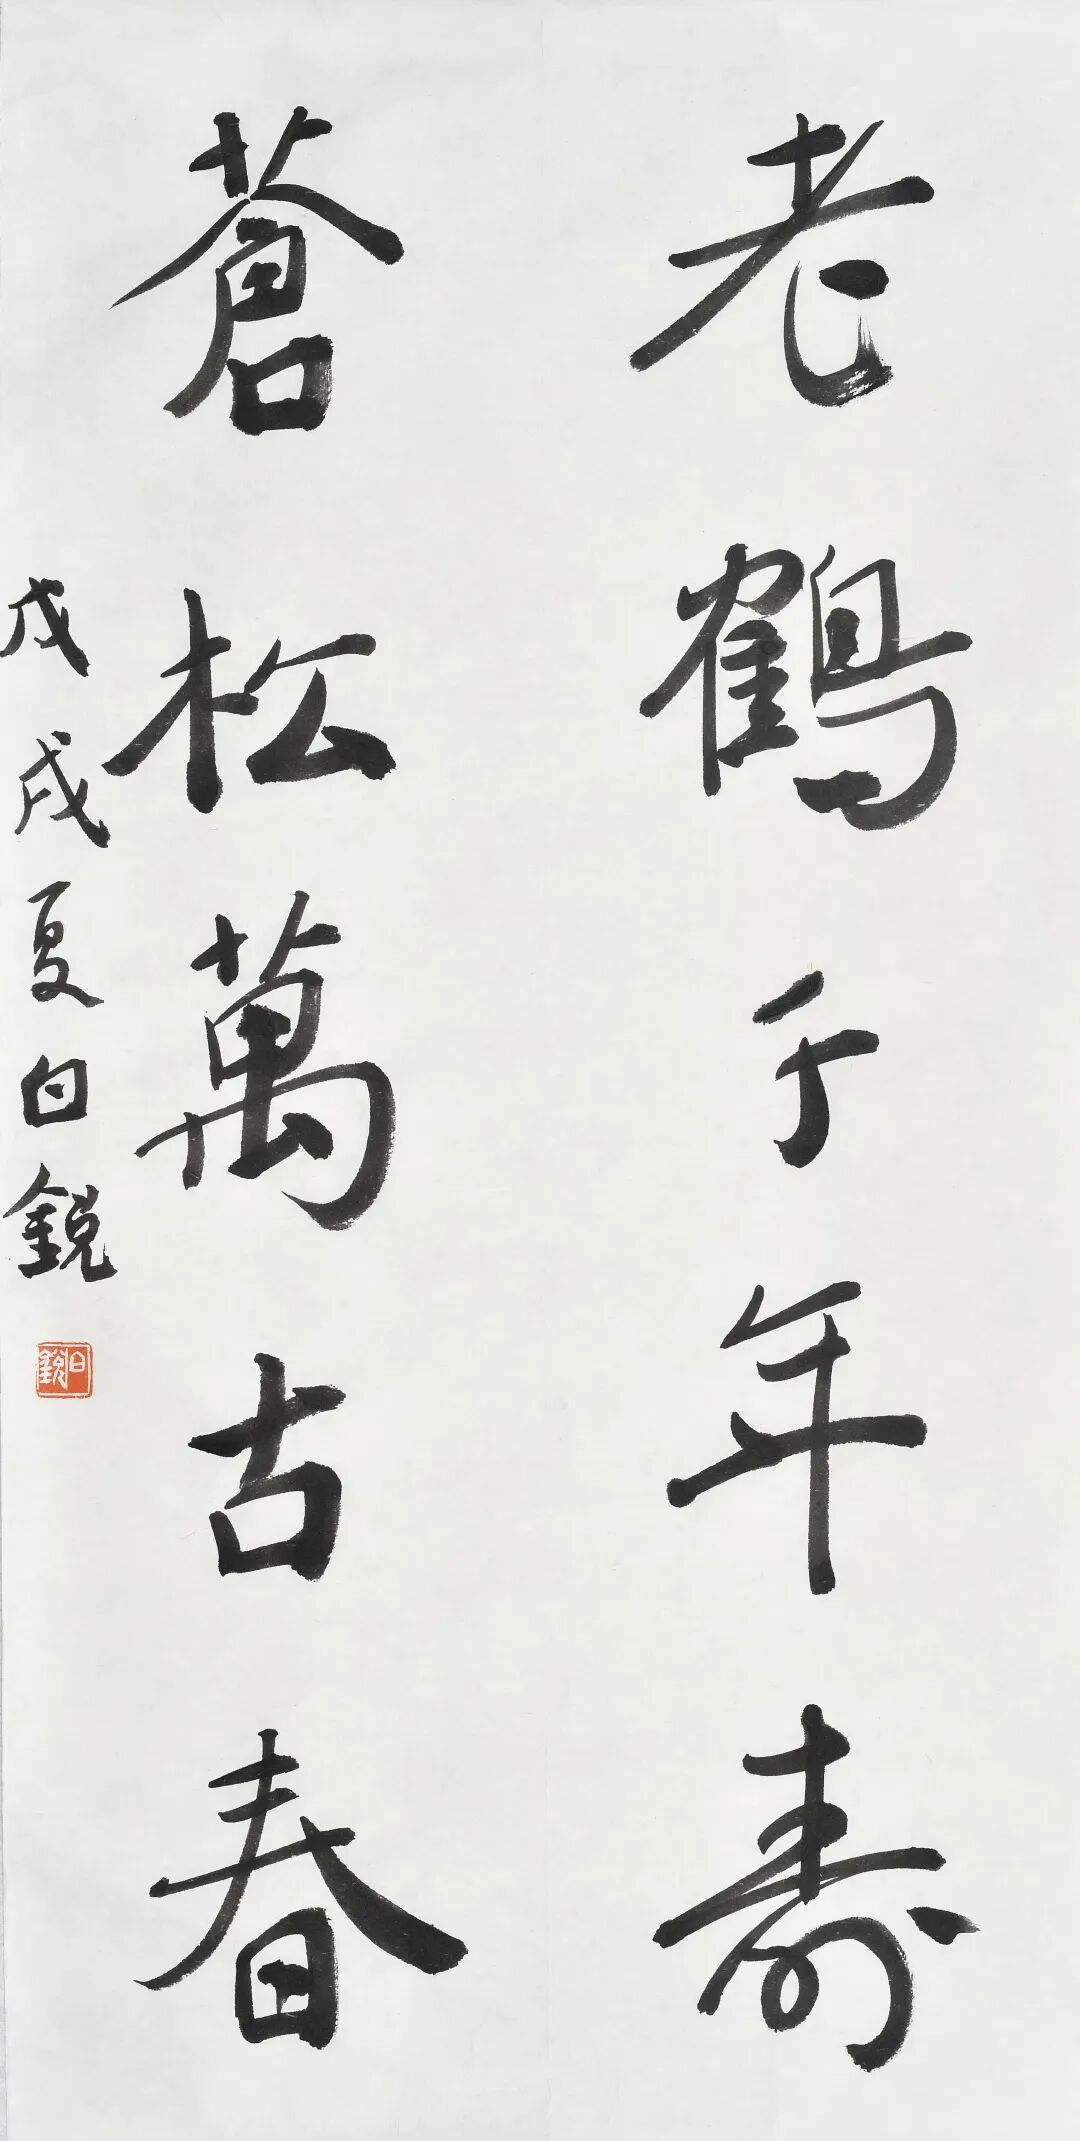 老鶴千年寿
蒼松萬古春
戊戌夏日銳
日銳